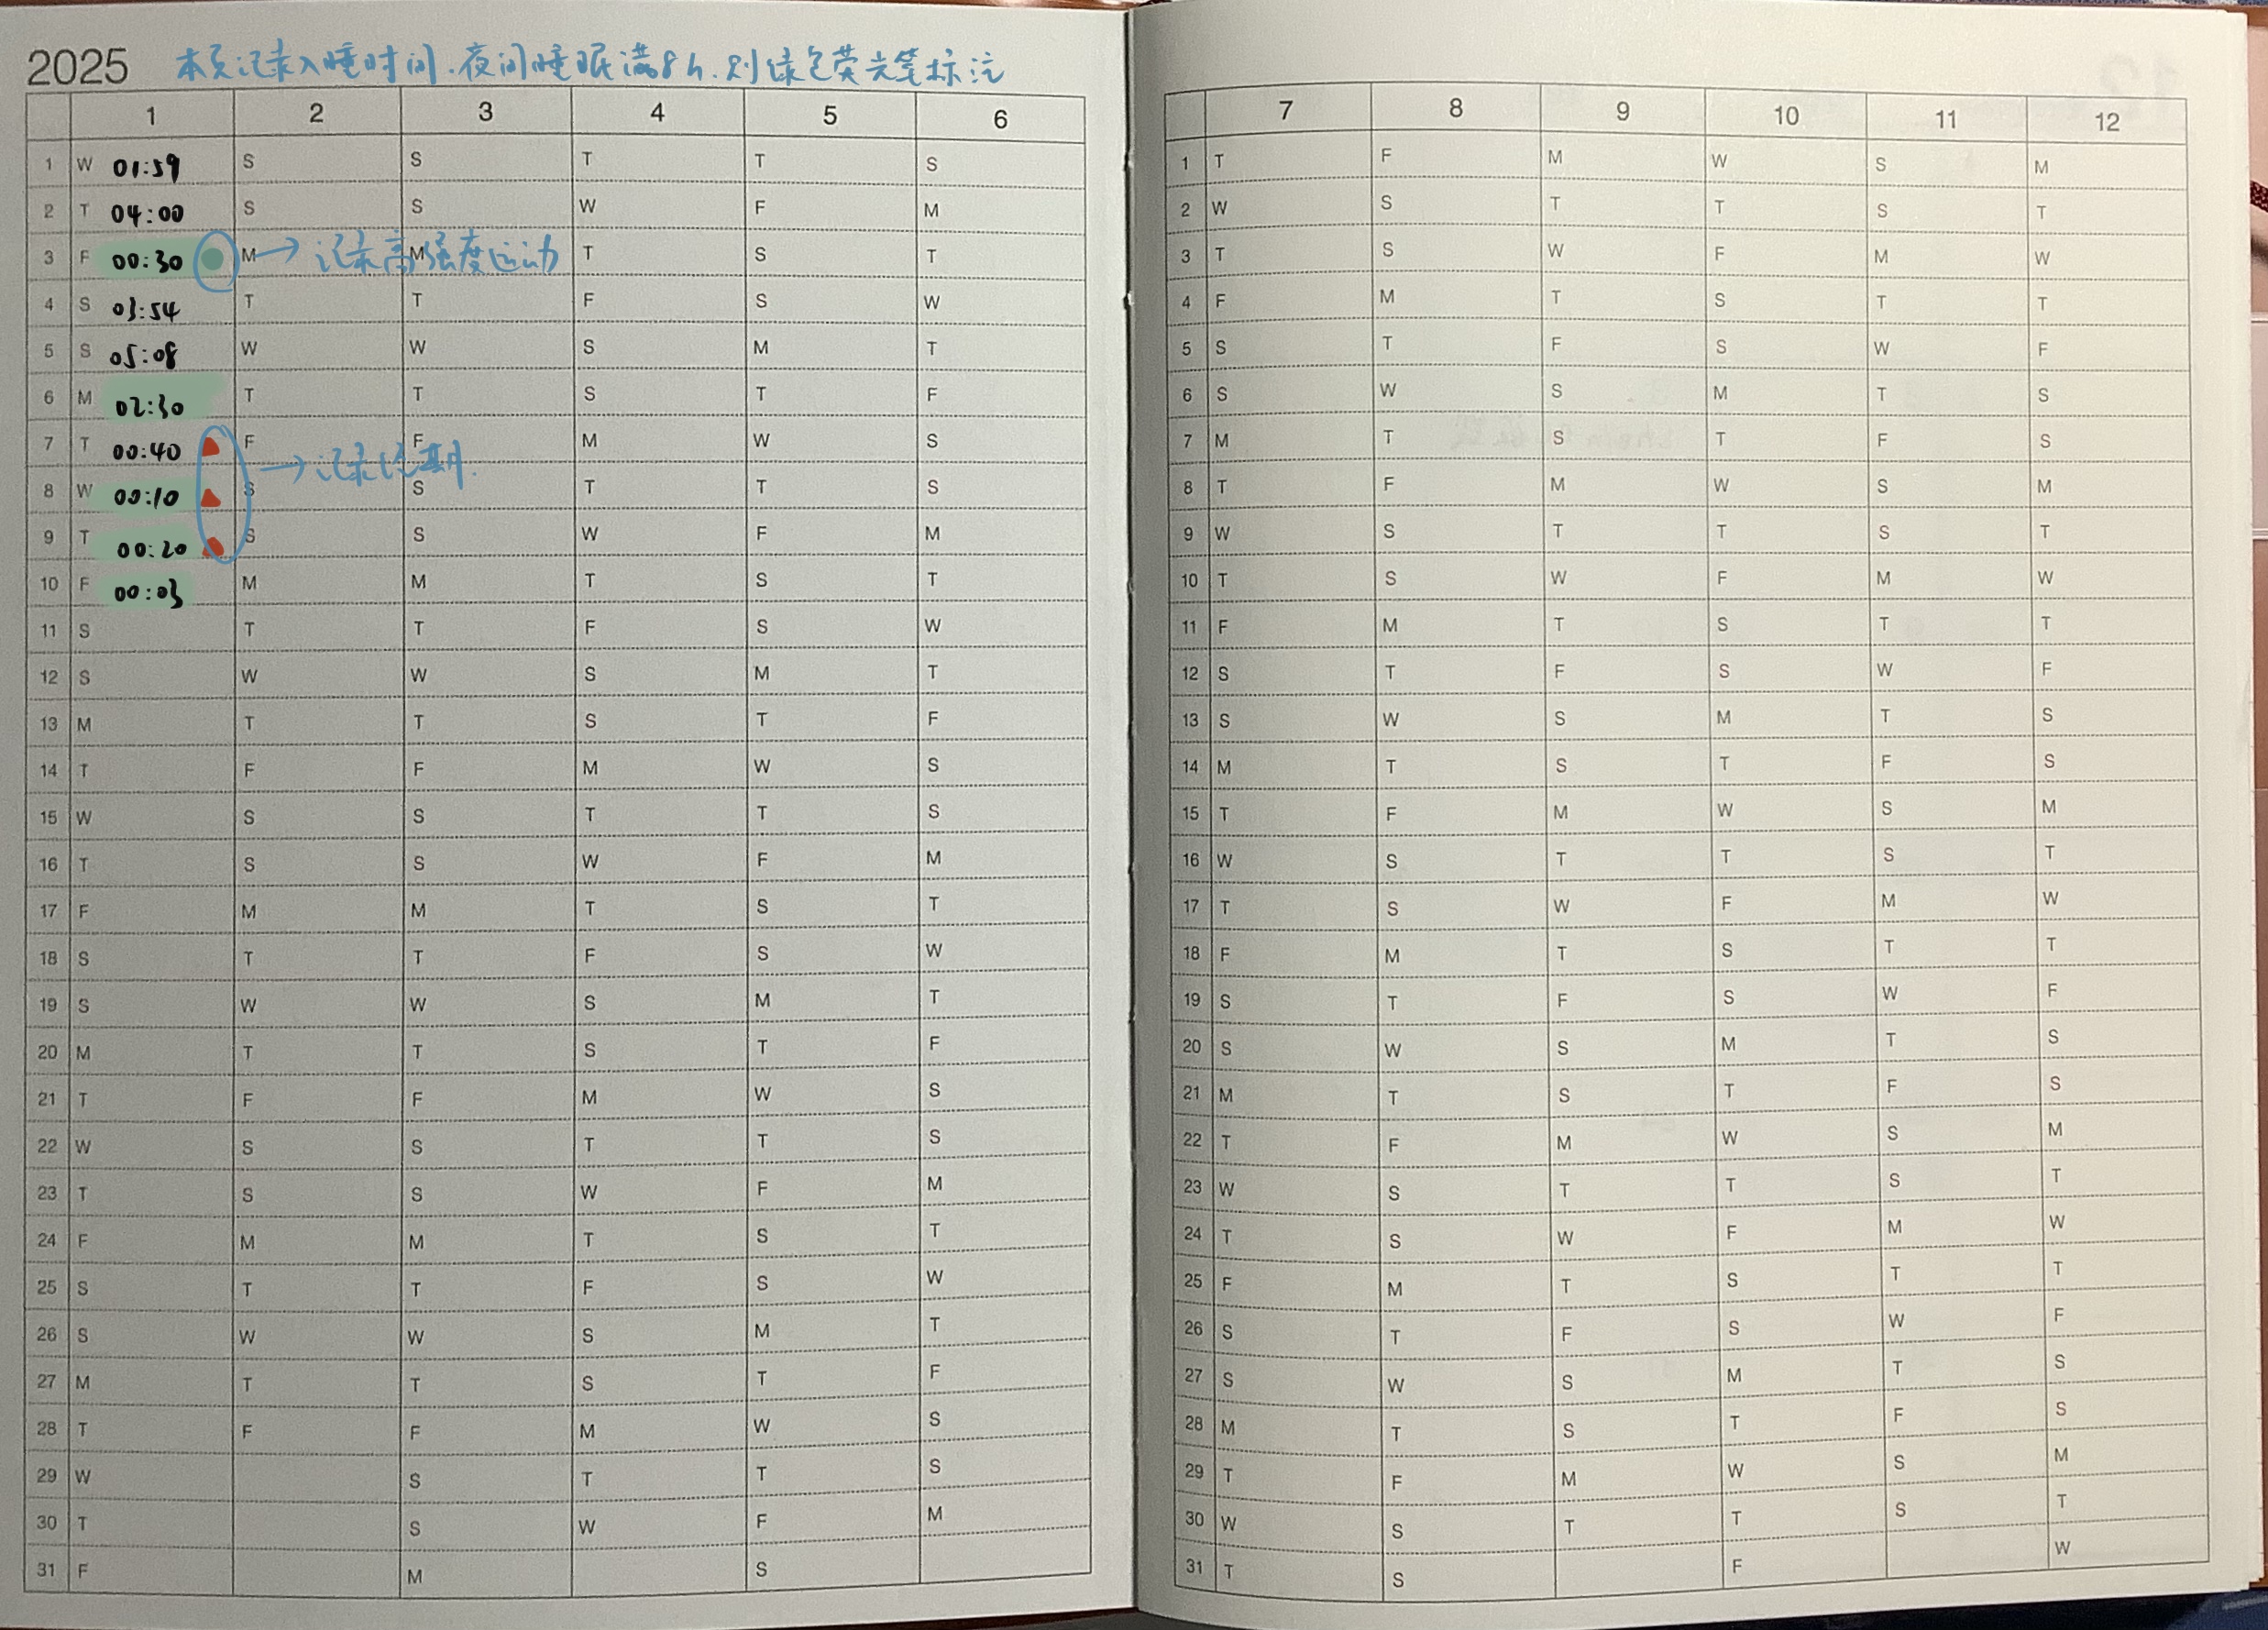 2025 本页记录入睡时间.夜间睡眠满8h.则绿色荧光笔标注
1 2 3 4 5 6
1 W 01:59 S S T T S
2 T 04:00 S S W F M
3 F 00:30 M → 记录高强度运动 M T S T
4 S 03:54 T T F S W
5 S 05:08 W W S M T
6 M 02:30 T T S T F
7 T 00:40 F F M W S
→ 记录经期.
8 W 00:10 S S T T S
9 T 00:20 S S W F M
10 F 00:03 M M T S T
11 S T T F S W
12 S W W S M T
13 M T T S T F
14 T F F M W S
15 W S S T T S
16 T S S W F M
17 F M M T S T
18 S T T F S W
19 S W W S M T
20 M T T S T F
21 T F F M W S
22 W S S T T S
23 T S S W F M
24 F M M T S T
25 S T T F S W
26 S W W S M T
27 M T T S T F
28 T F F M W S
29 W S T T S
30 T S W F M
31 F M S
7 8 9 10 11 12
1 T F M W S M
2 W S T T S T
3 T S W F M W
4 F M T S T T
5 S T F S W F
6 S W S M T S
7 M T S T F S
8 T F M W S M
9 W S T T S T
10 T S W F M W
11 F M T S T T
12 S T F S W F
13 S W S M T S
14 M T S T F S
15 T F M W S M
16 W S T T S T
17 T S W F M W
18 F M T S T T
19 S T F S W F
20 S W S M T S
21 M T S T F S
22 T F M W S M
23 W S T T S T
24 T S W F M W
25 F M T S T T
26 S T F S W F
27 S W S M T S
28 M T S T F S
29 T F M W S M
30 W S T T S T
31 T S F W